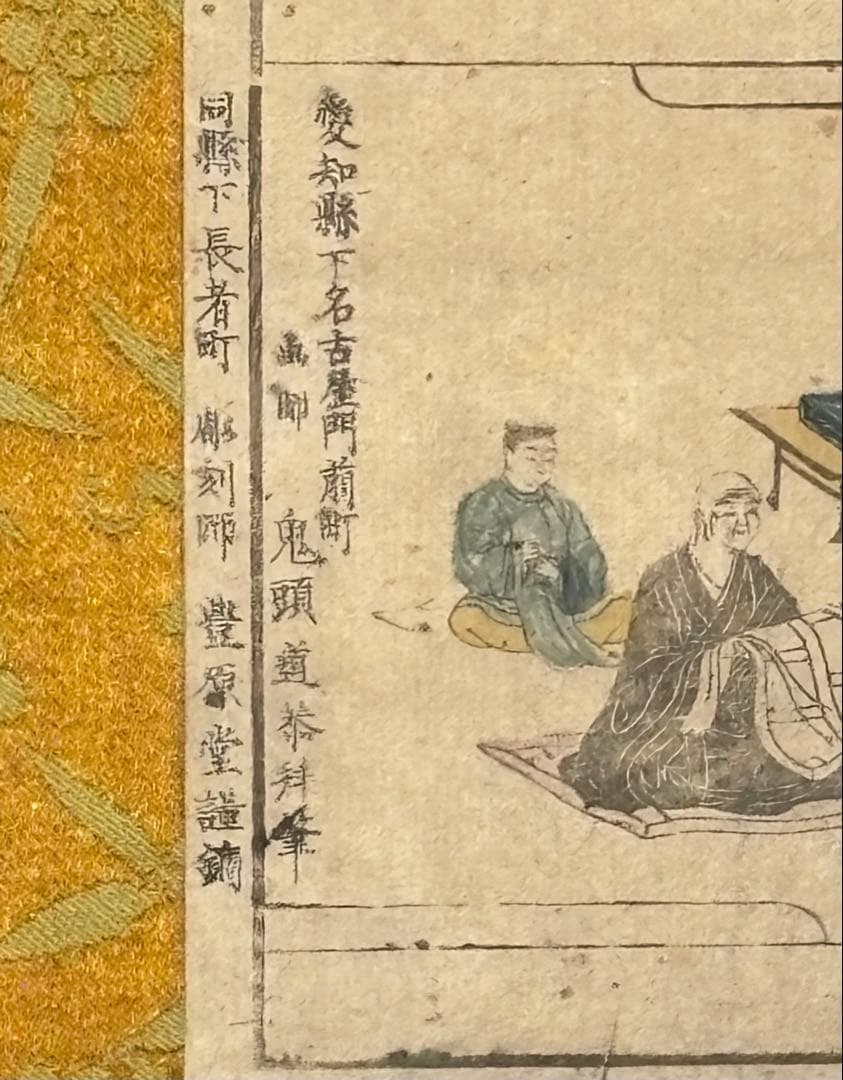 愛知縣下名古屋門前町
画師 鬼頭道恭拜筆
同縣下長者町 彫刻師 豊原堂謹鐫